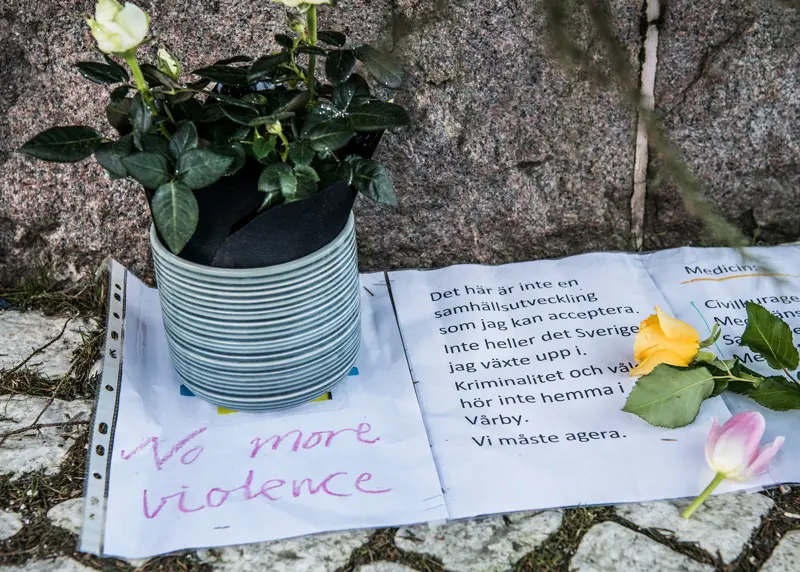 No more
violence
Det här är inte en
samhällsutveckling
som jag kan acceptera.
Inte heller det Sverige
jag växte upp i.
Kriminalitet och
hör inte hemma i
Vårby.
Vi måste agera.
Civilkurage